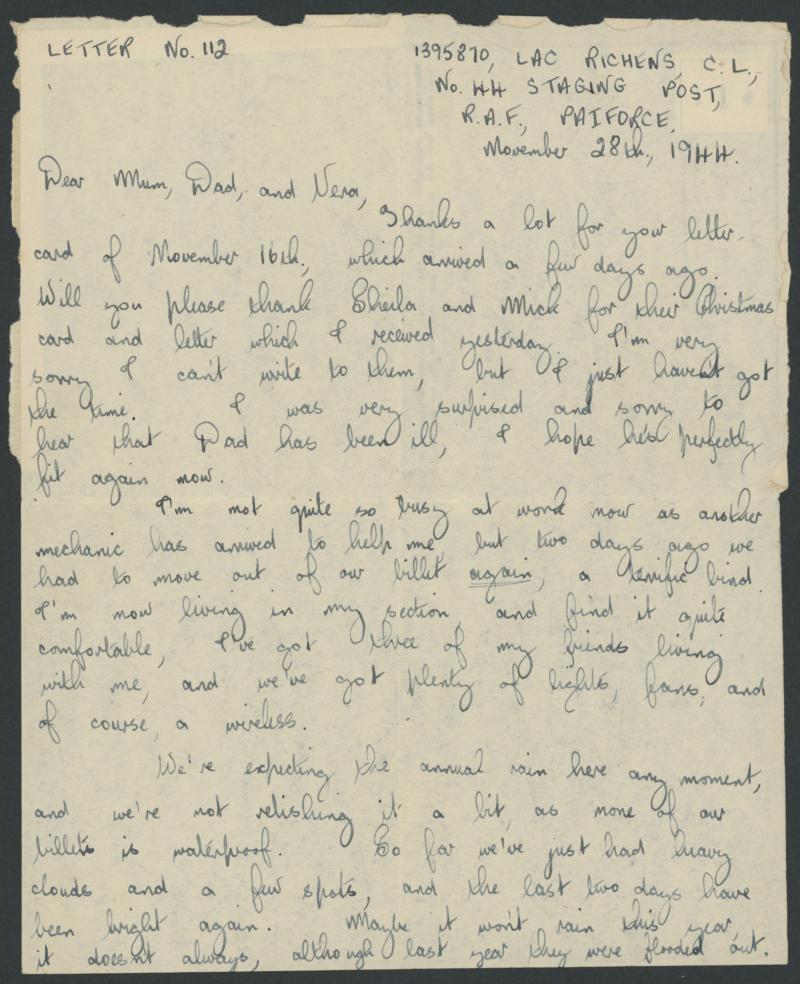 LETTER No. 112
1395870, LAC RICHENS, C. L.,
No. 44 STAGING POST,
R.A.F., PAIFORCE.
November 28th., 1944.
Dear Mum, Dad, and Vera,
Thanks a lot for your letter-
card of November 16th., which arrived a few days ago.
Will you please thank Sheila and Mick for their Christmas
card and letter which I received yesterday. I'm very
sorry I can't write to them, but I just haven't got
the time. I was very surprised and sorry to
hear that Dad has been ill, I hope he's perfectly
fit again now.
I'm not quite so busy at work now as another
mechanic has arrived to help me, but two days ago we
had to move out of our billet again, a terrific bind.
I'm now living in my section, and find it quite
comfortable, I've got three of my friends living
with me, and we've got plenty of lights, fans, and
of course, a wireless.
We're expecting the annual rain here any moment,
and we're not relishing it a bit, as none of our
billets is waterproof. So far we've just had heavy
clouds and a few spots, and the last two days have
been bright again. Maybe it won't rain this year,
it doesn't always, although last year they were flooded out.